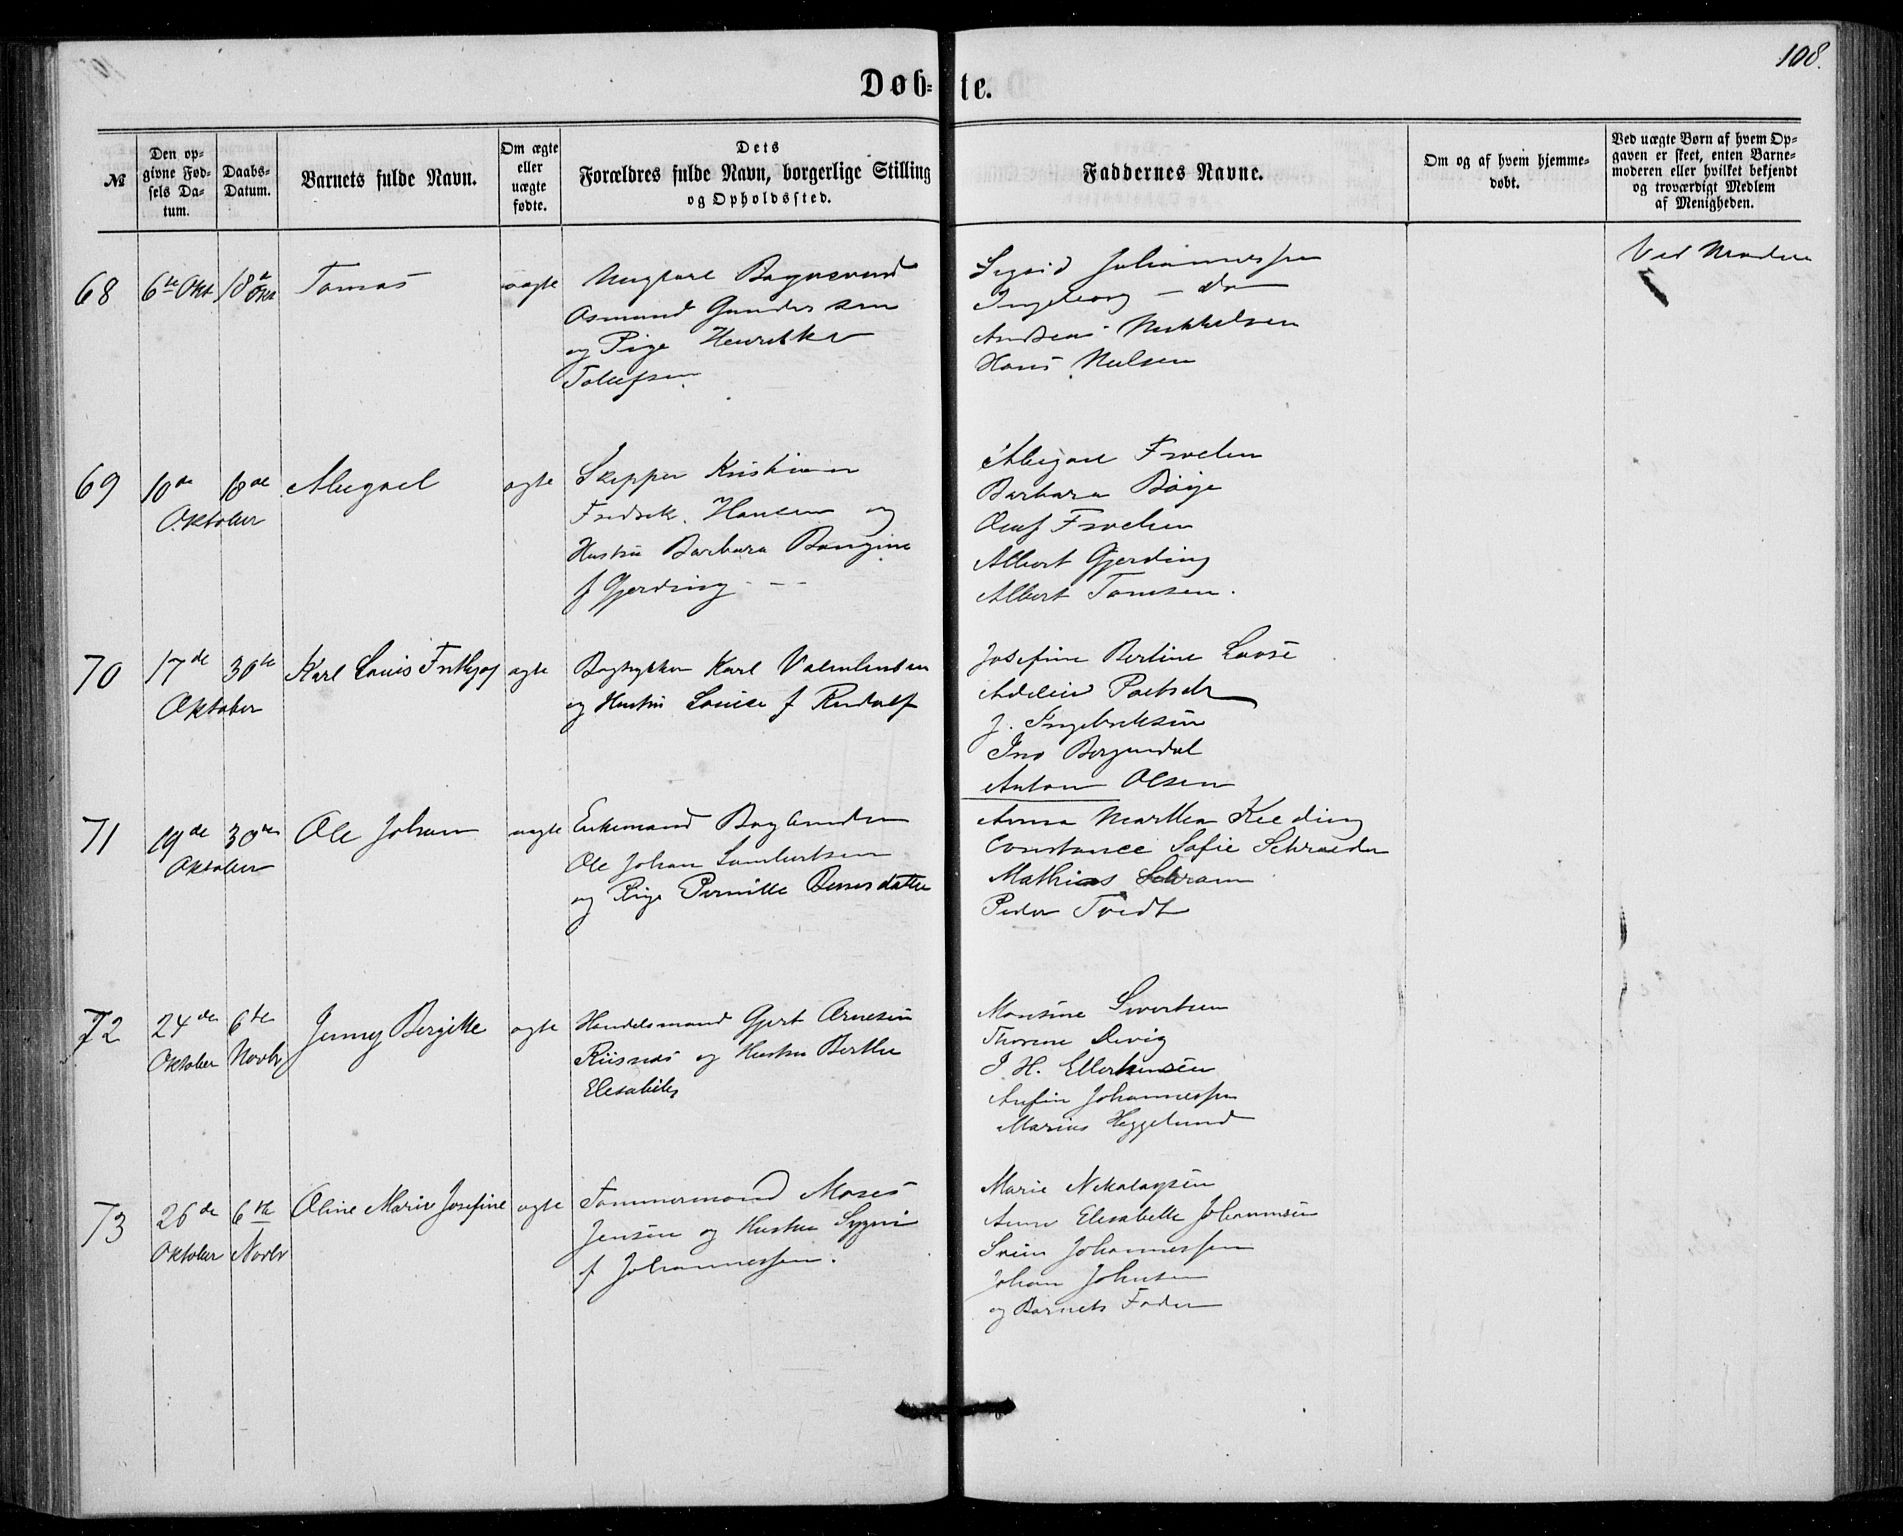 108.
Døb-te.
№
Den op-
givne Fød-
sels Da-
tum.
Daabs-
Datum.
Barnets fulde Navn.
Om ægte
eller
uægte
fødte.
Dets
Forældres fulde Navn, borgerlige Stilling
og Opholdssted.
Faddernes Navne.
Om og af hvem hjemme-
døbt.
Ved uægte Børn af hvem Op-
gaven er skeet, enten Barne-
moderen eller hvilket bekjendt
og troværdigt Medlem
af Menigheden.
68
6te Okt
18de Okt
Tomas
uægte
Ungkarl
Osmund Gundersen
og Pige Henrikke
Tollefsen
Sigrid Johannessen
Ingeborg — Do
Andreas Mikkelsen
Hans Nielsen
Ved Moderen
69
10de
18de
Oktober
Abigael
ægte
Skipper Kristian
Fredrik Hansen og
Hustru Barbara
f Gjerding
Abigael
Barbara Böije
Oluf
Albert Gjerding
Albert Tomsen.
70
17de
30te
Oktober
Karl Louis Frithjof
ægte
Bogtrykker Karl Valentinsen
og Hustru Louise f Rudolf
Josefine Bertine Loose
Poetsch
J. Ingebriktsen
Bergendal
Anton Olsen
71
19de
30te
Oktober
Ole Johan
uægte
Enkemand
Ole Johan Lambertsen
og Pige Pernille
Anna Martha Kieding
Constance Sofie Schrøeder
Mathias Schram
Peder Tvedt
72
24de
Oktober
6te
Novbr
Jenny Bergitte
ægte
Handelsmand Gjert Arnesen
Riisnæs og Hustru Berthe
Elisabeth
Monsine Sivertsen
Thorine Devig
J H. Ellerhusen
Anfin Johannessen
Marius Heggelund
73
26de
Oktober
6te
Novbr
Oline Marie Josefine
ægte
Tømmermand Moses
Jensen og Hustru Sygni
f Johannessen.
Marie Nikolaysen
Anne Elisabeth Johannsen
Svein Johannessen
Johan Johnsen
og Barnets Fader